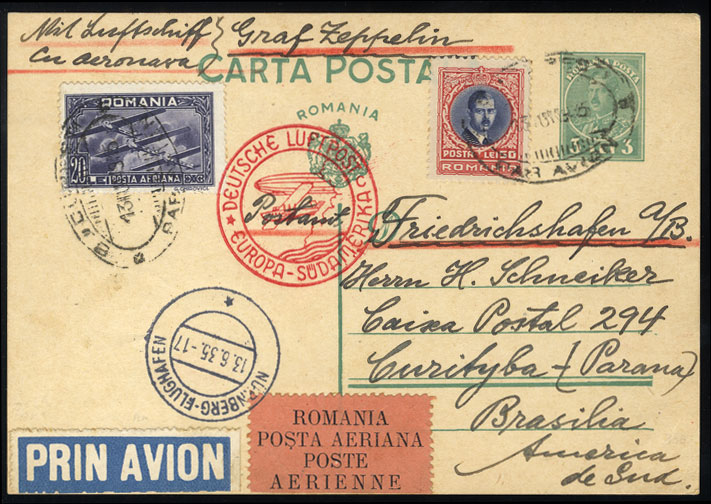 Mit Luftschiff } Graf Zeppelin
Cu aeronava
CARTA POSTA
ROMANIA
ROMANIA
20
POSTA AERIANA
POSTA LEI 30
ROMANIA
3
PAR AVION
DEUTSCHE LUFTPOST
EUROPA-SÜDAMERIKA
Friedrichshafen a/B.
Herrn H. Schneiker
Caixa Postal 294
Curityba - (Parana)
Brasilia
America
de Sud.
13.6.35.-17
NÜRNBERG-FLUGHAFEN
PRIN AVION
ROMANIA
POSTA AERIANA
POSTE
AERIENNE